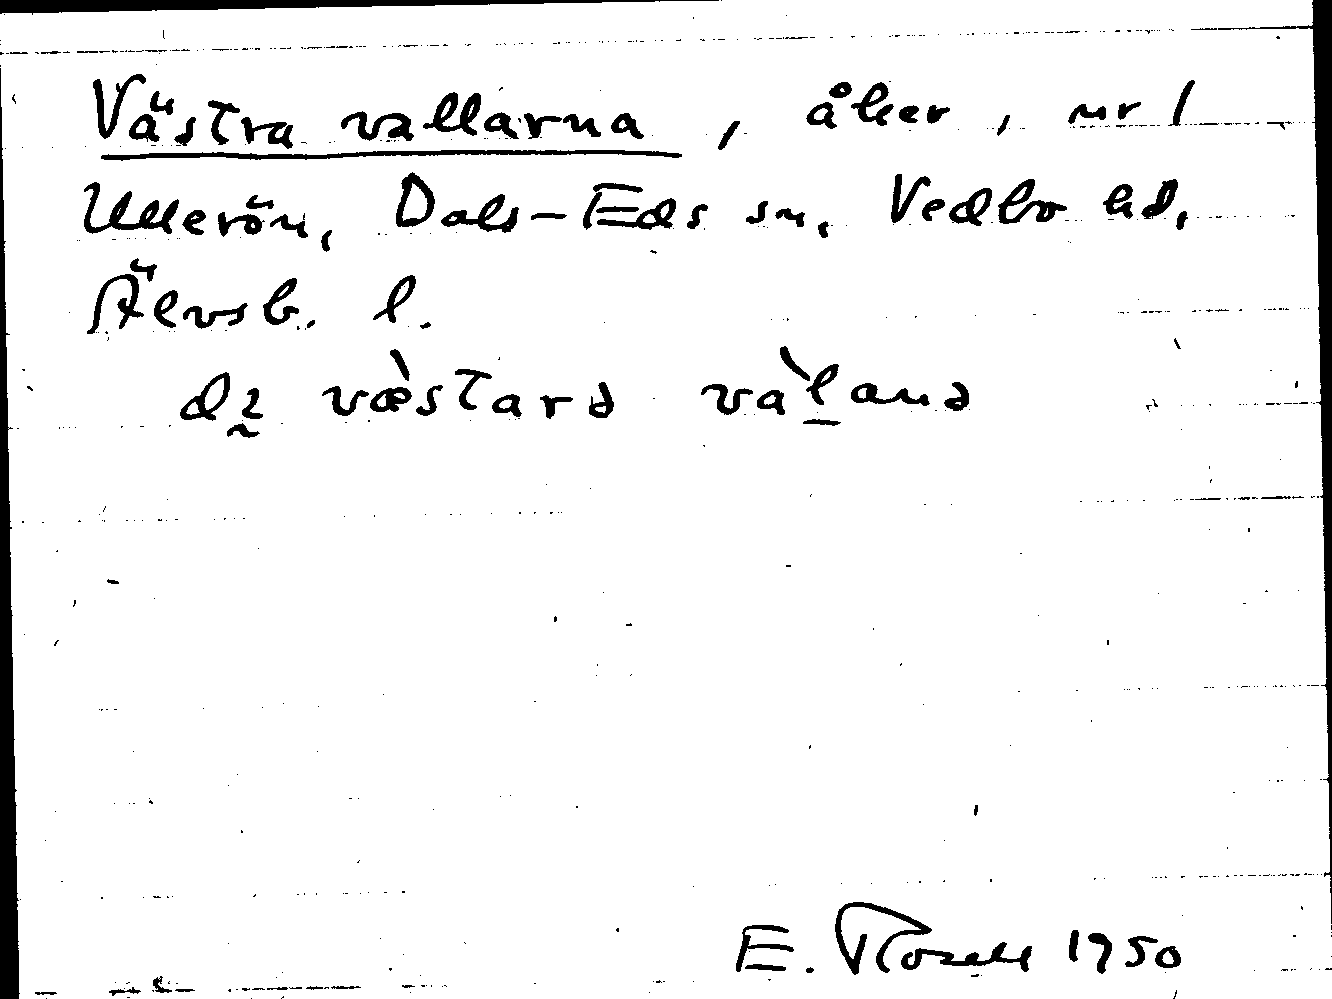 Västra vallarna, åker, nr 1
Ullerön, Dals-Eds sn, Vedbo hd,
Älvsb. l.
væ̀starə và l̲anə
E. Rosell 1950